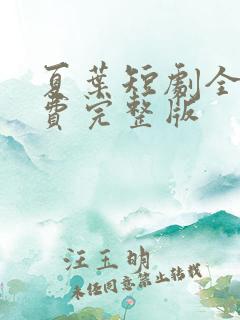 夏葉短劇全
費完整版
汪玉明
未经同意禁止转载